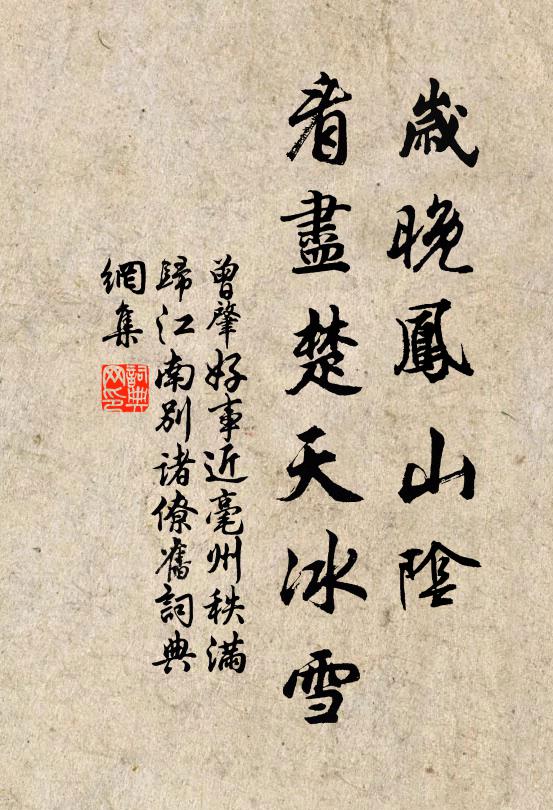 歲晚鳳山陰
看盡楚天冰雪
曾肇好事近亳州秩滿
歸江南別諸僚舊詞典
網集
詞典
网印